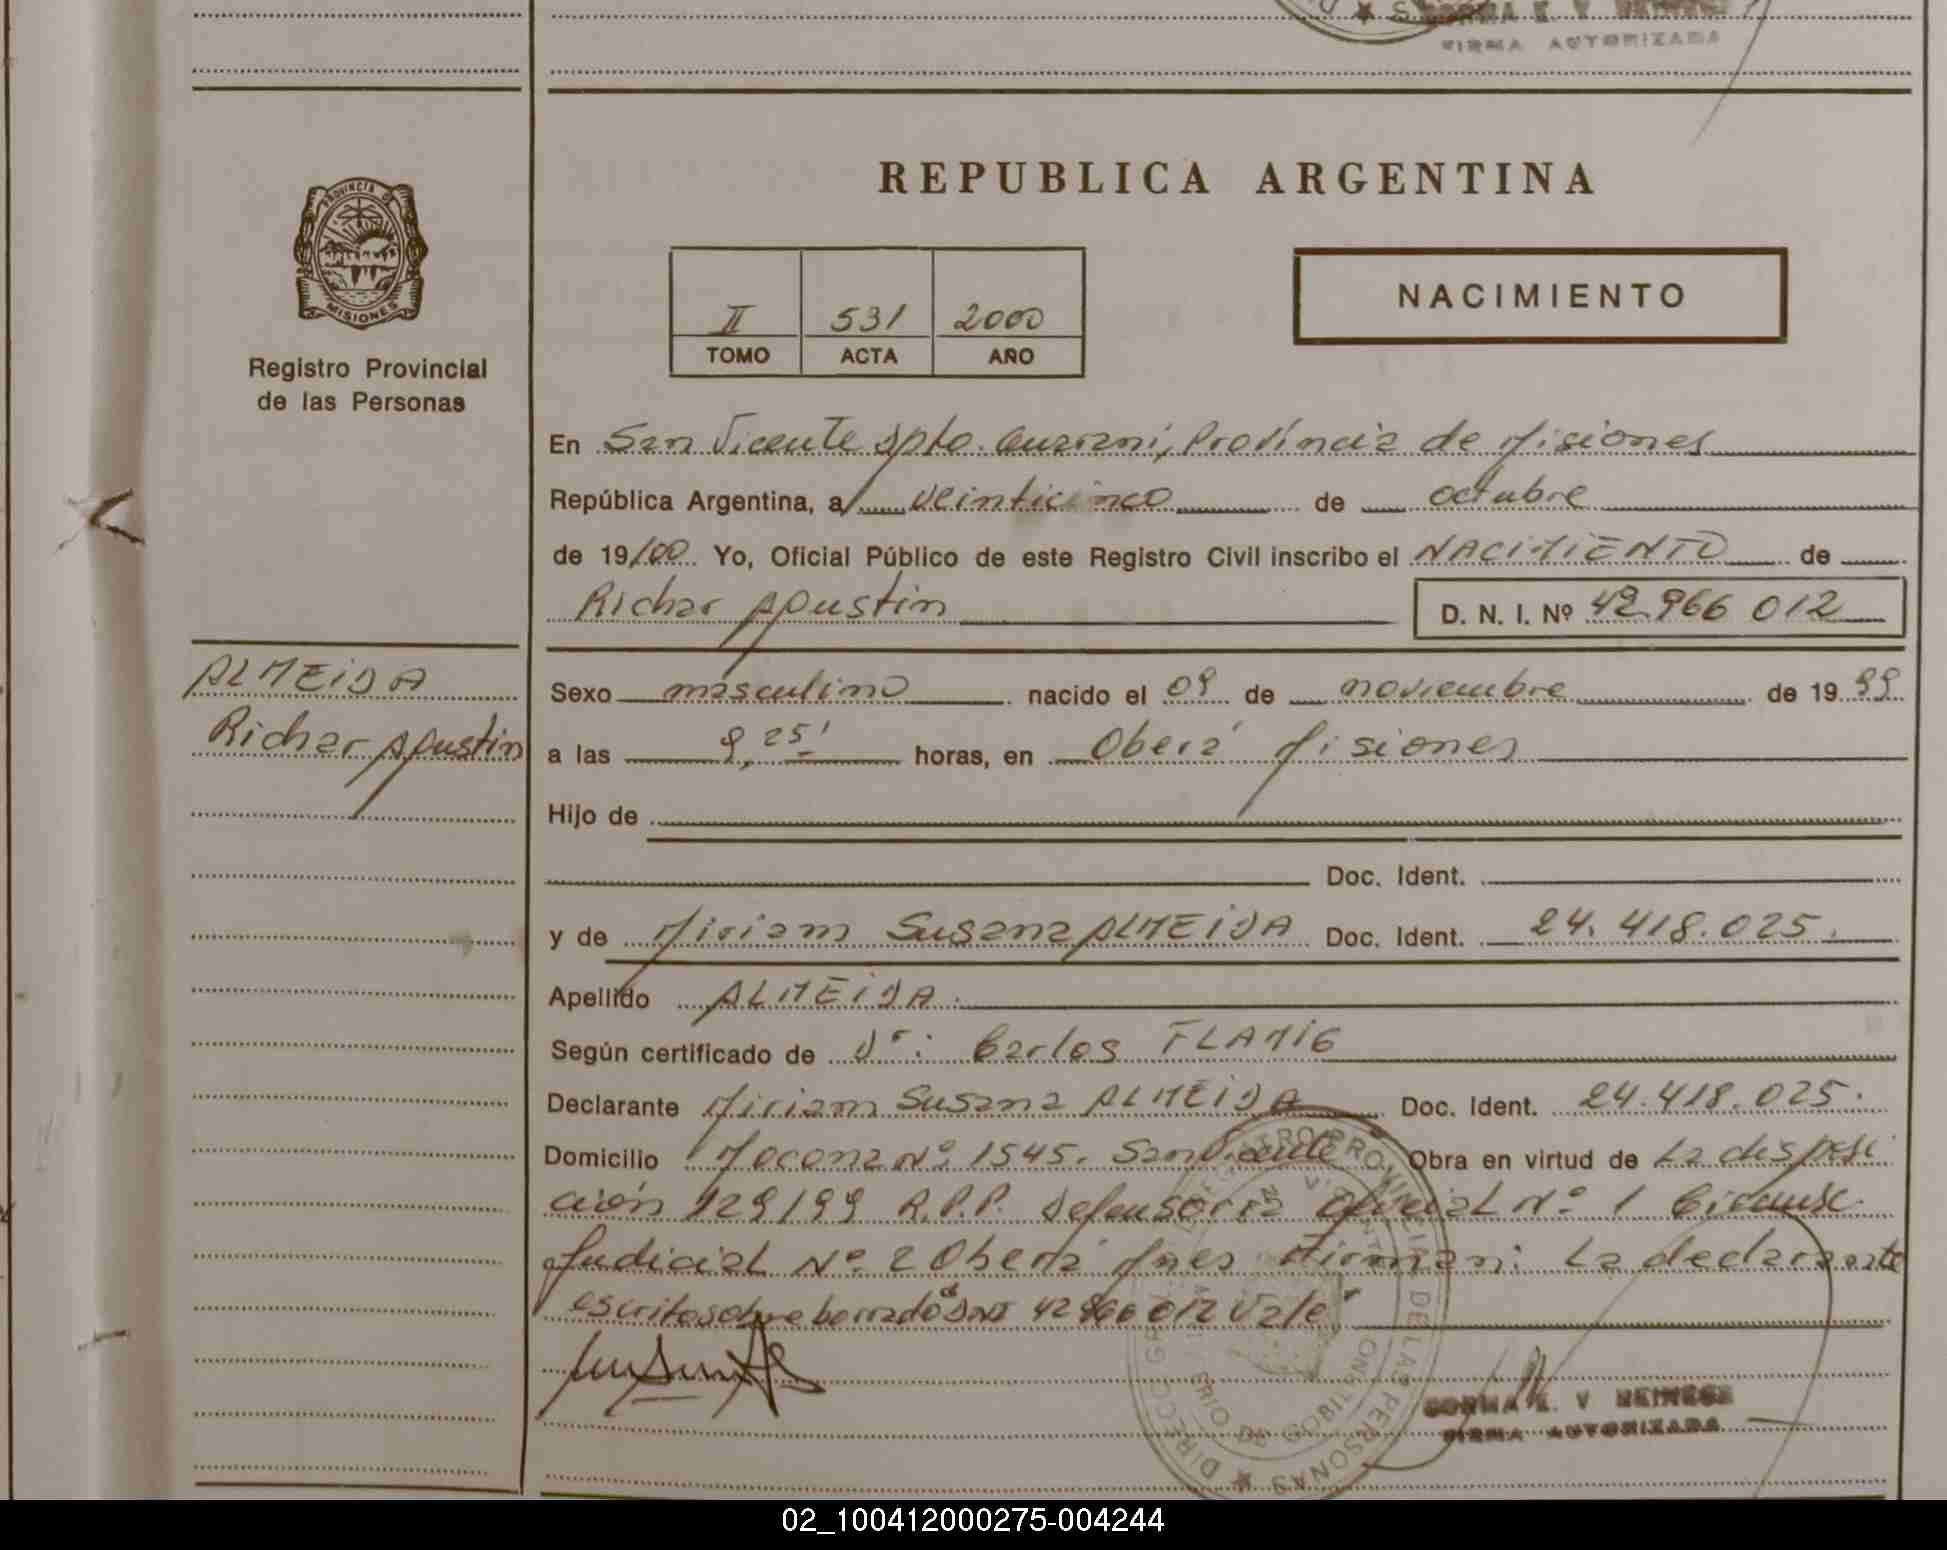 FIRMA AUTORIZADA
PROVINCIA DE
MISIONES
Registro Provincial
de las Personas
REPUBLICA ARGENTINA
II 531 2000
TOMO ACTA AÑO
NACIMIENTO
En San Vicente Dpto. Guaraní, Provincia de Misiones
República Argentina, a veinticinco de octubre
de 19/00 Yo, Oficial Público de este Registro Civil inscribo el NACIMIENTO de
Richar Agustin D. N. I. Nº 42.966 012
ALMEIDA
Richar Agustin
Sexo masculino nacido el 09 de noviembre de 19 99
a las 9,25' horas, en Oberá Misiones
Hijo de
Doc. Ident.
y de Miriam Susana ALMEIDA Doc. Ident. 24.418.025.
Apellido ALMEIDA.
Según certificado de Dr: Carlos FLAMIG
Declarante Miriam Susana ALMEIDA Doc. Ident. 24.418.025.
Domicilio Mocona Nº 1545. San Vicente Obra en virtud de La disposi
ción 129/99 R.P.P. Defensoria Oficial Nº 1 Circunsc.
Judicial Nº 2 Oberá Mnes Firman: La declarante
escrito sobre borrado "DNI 42966012 Vale"
NORMA E. V
FIRMA AUTORIZADA
02_100412000275-004244